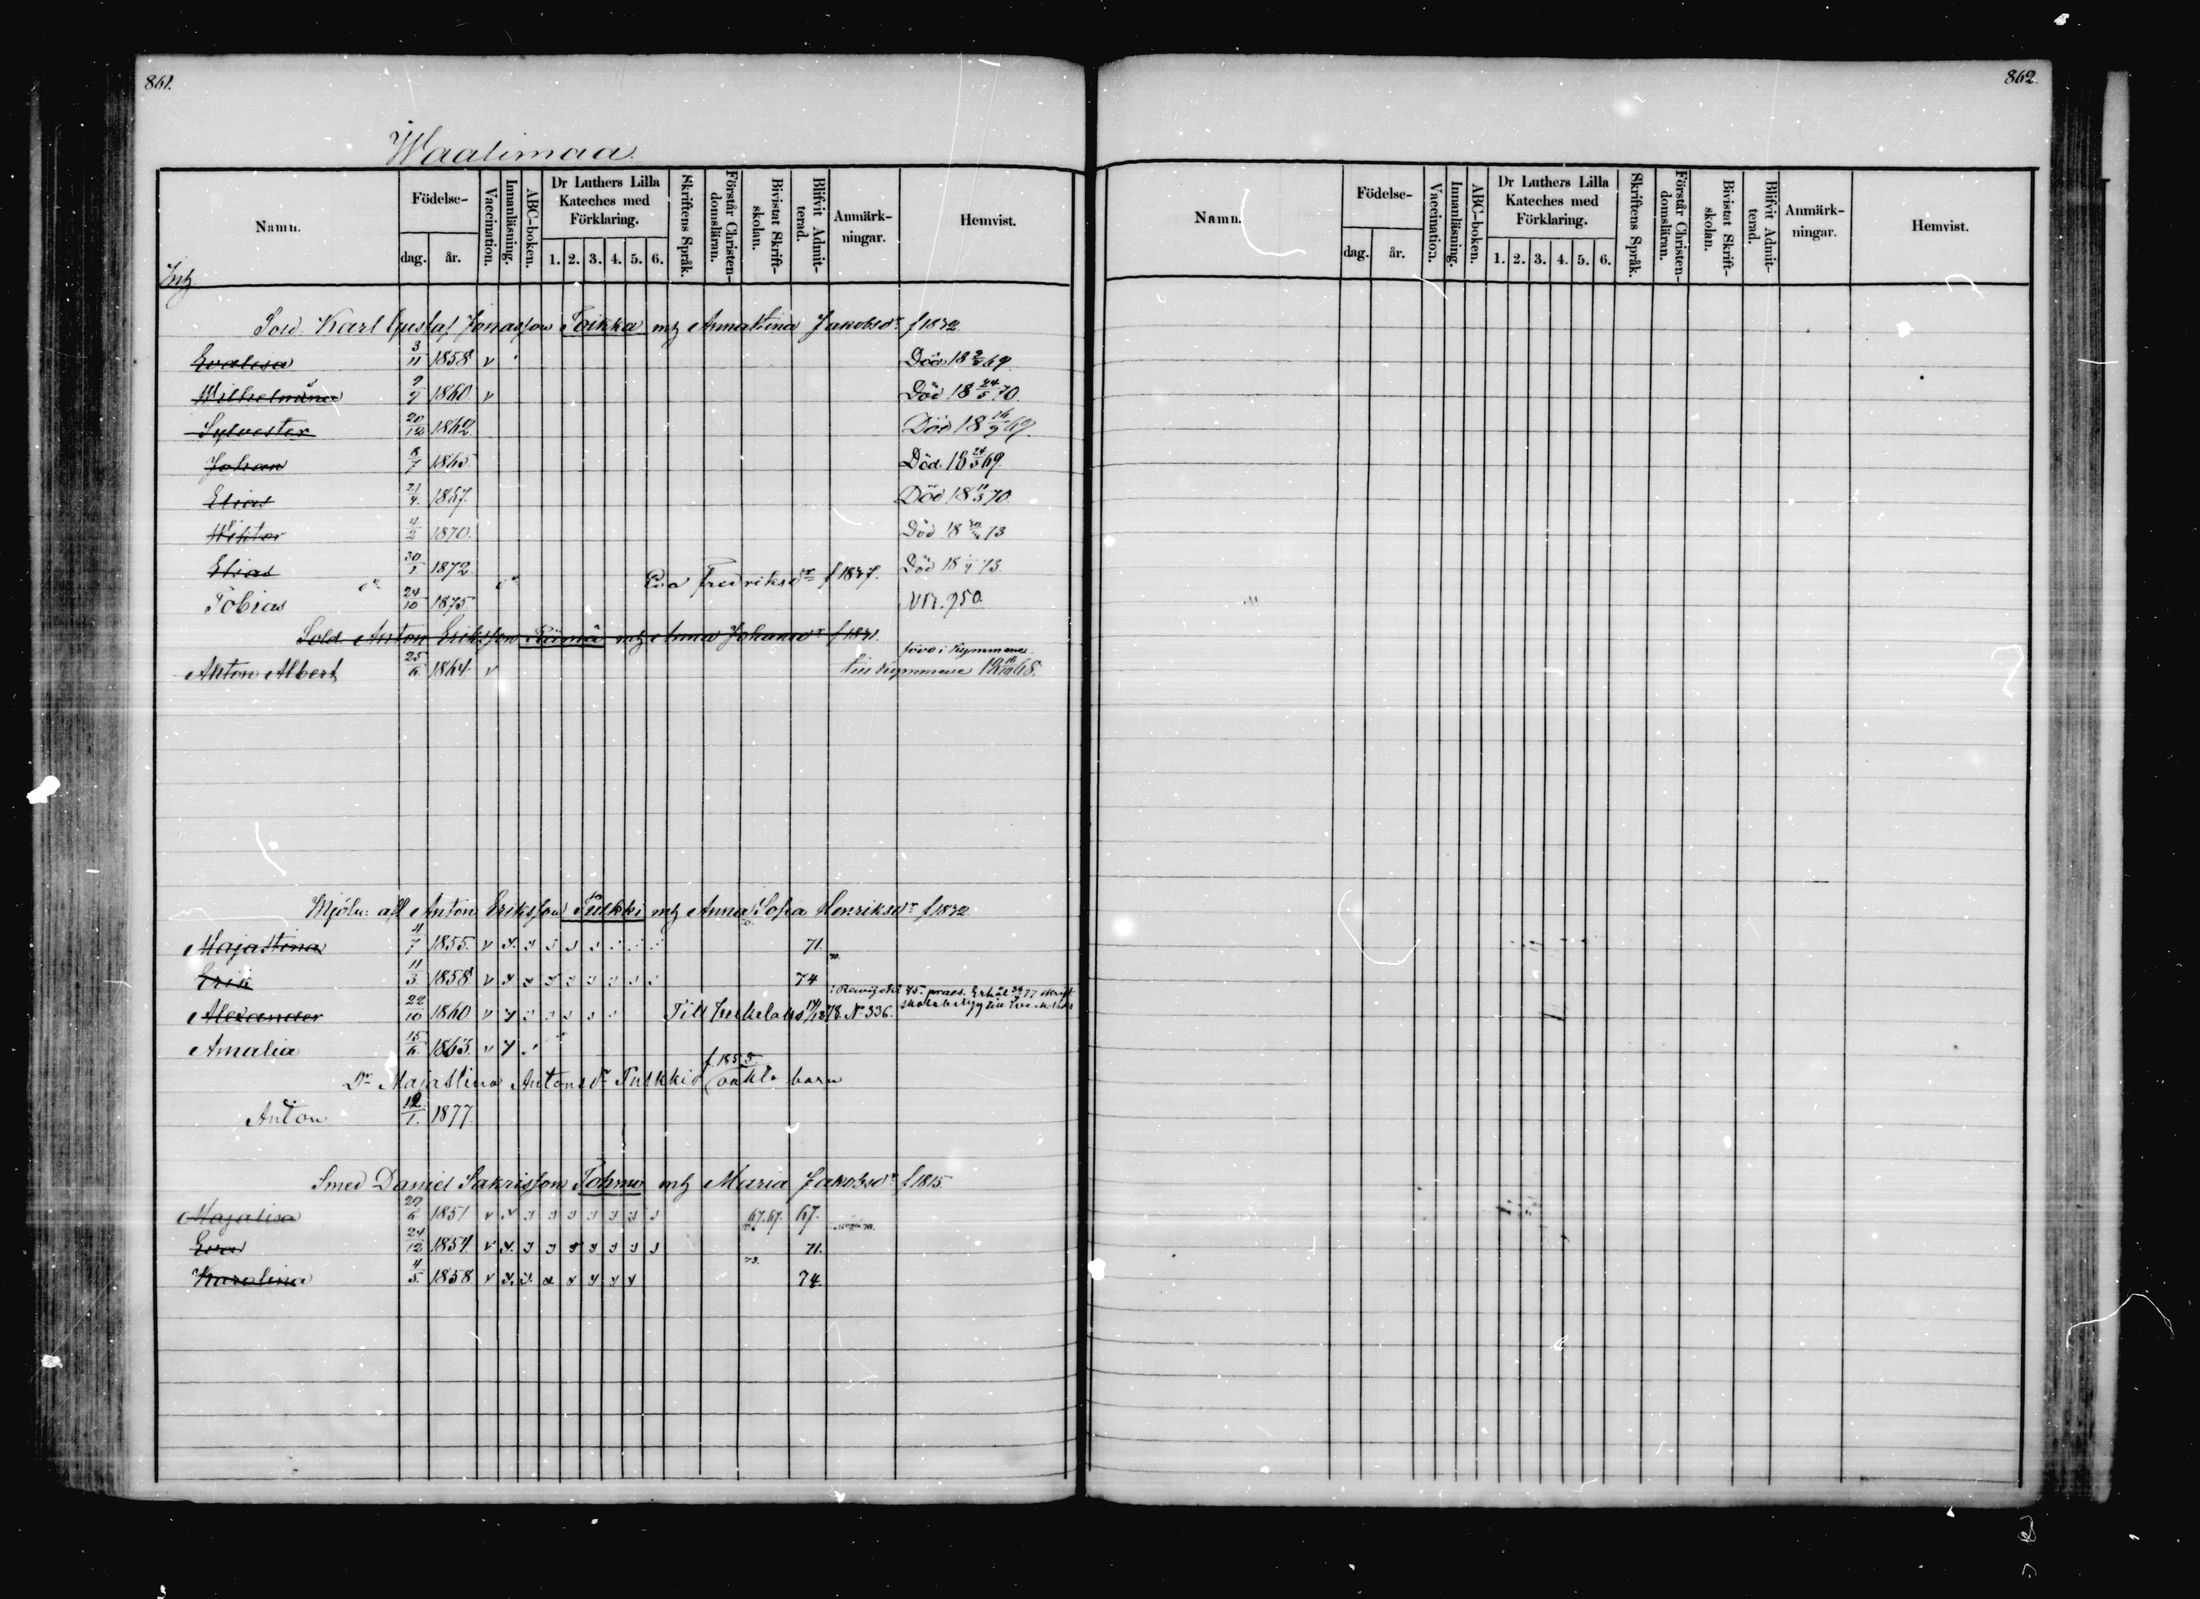 861.
Waalimaa.
Namn. Födelse- dag. år. Vaccination. Innanläsning. ABC-boken. Dr Luthers Lilla Kateches med Förklaring. 1. 2. 3. 4. 5. 6. Skriftens Språk. Förstår Christen-domsläran. Bivistat Skrift-skolan. Blifvit Admit-terad. Anmärk-ningar. Hemvist.
Sold. Karl Gustaf Jonasson Toikka mtz Annastina Jakobsdr f 1832
Evalisa 3/11 1858 v Död 18 69.
Wilhelmina 9/9 1860 v Död 18 24/5 70.
Sylvester 20/12 1862. Död 18 16/9 69.
Johan 8/7 1865. Död. 18 24/5 69.
Elias 21/4. 1867. Död 18 11/3 70.
Wiktor 4/2 1870. Död 18 73
Elias 30/1 1872. Död 18 73.
d:o d:o Eva Fredriksdr f 1837.
Tobias 24/10 1875 N:r. 950.
Sold. Anton Eriksson mtz Anna Johansdr f 1831.
Anton Albert 25/6 1864 v till Kymmene 18 68.
Mjöln: afl Anton Eriksson Pulkki mtz Anna Sofia Henriksdr f 1832
Majastina 4/7 1855. v 71.
Erik 11/3 1858 v 74
Alexander 22/10 1860 v 78. N:o 336.
Amalia 15/6 1863. v
Dr Majastina Antonsdr Pulkkis f. 1855. oäkta barn
Anton 12/1. 1877.
Smed Daniel Sakrisson Tohmo mtz Maria Jakobsdr f 1815.
Majalisa 29/6 1851 v 67. 67. 67.
Eva 24/12 1854 v 71.
73.
Karolina 4/5. 1858 v 74.
862.
Namn. Födelse- dag. år. Vaccination. Innanläsning. ABC-boken. Dr Luthers Lilla Kateches med Förklaring. 1. 2. 3. 4. 5. 6. Skriftens Språk. Förstår Christen-domsläran. Bivistat Skrift-skolan. Blifvit Admit-terad. Anmärk-ningar. Hemvist.